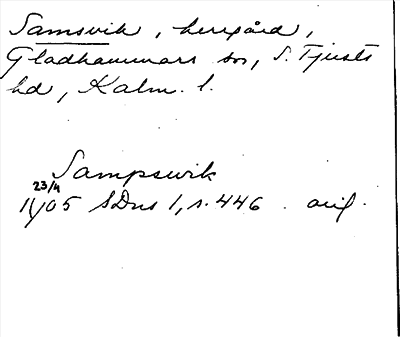 Samsvik, herrgård,
Gladhammars sn, S. Tjusts
hd, Kalm. l.
Sampsuik
23/4
1405 SDns 1, s. 446 . orig.